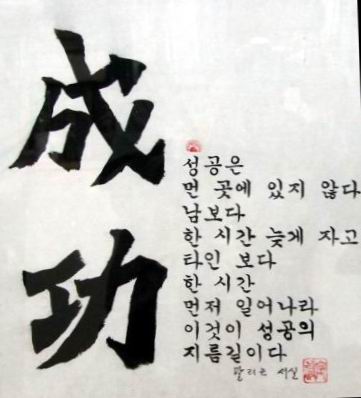 成功
성공은
먼 곳에 있지 않다
남보다
한 시간 늦게 자고
타인 보다
한 시간
먼저 일어나라
이것이 성공의
지름길이다
서실